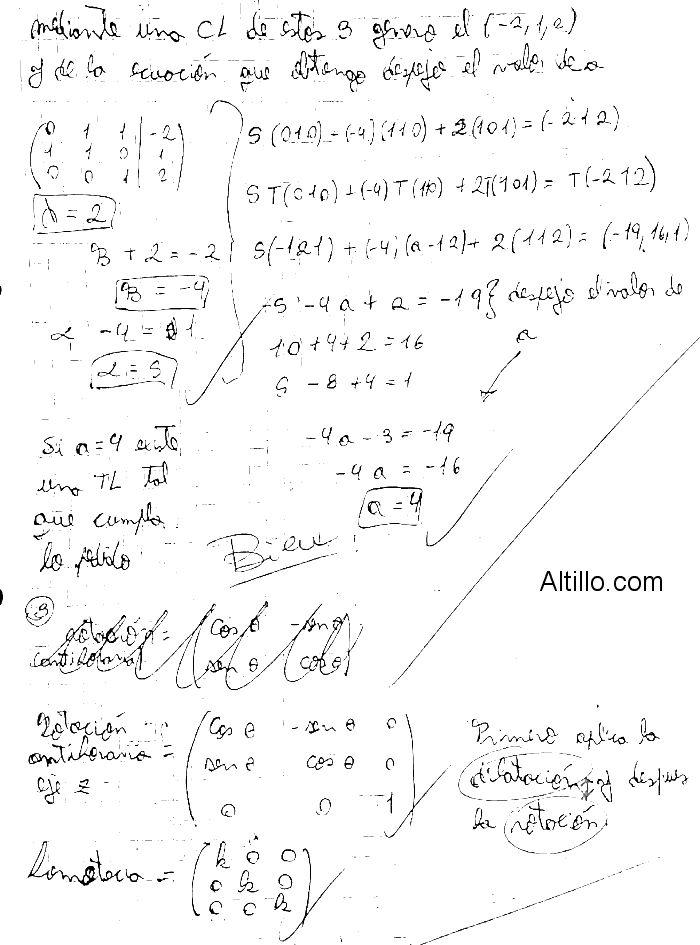 mediante una CL de estos 3 genero el (-2,1,2)
y de la ecuación que obtengo despejo el valor de a
0 1 1 | -2
1 1 0 | 1
0 0 1 | 2
γ = 2
β + 2 = -2
β = -4
α - 4 = 1
α = 5
5(010) + (-4)(110) + 2(101) = (-212)
5T(010) + (-4)T(110) + 2T(101) = T(-212)
5(-121) + (-4)(a-12) + 2(112) = (-19,16,1)
-5 -4a + 2 = -19} despejo el valor de
a
10+4+2=16
5 -8 +4 = 1
-4a -3 = -19
-4a = -16
a=4
Si a=4 existe
una TL tal
que cumpla
lo pedido
Bien!
Altillo.com
3
rotación =
antihoraria
cos θ -sen θ
sen θ cos θ
Rotación
antihoraria =
eje z
cos θ -sen θ 0
sen θ cos θ 0
0 0 1
Primero aplica la
dilatación y despues
la rotación
Homotecia =
k 0 0
0 k 0
0 0 k